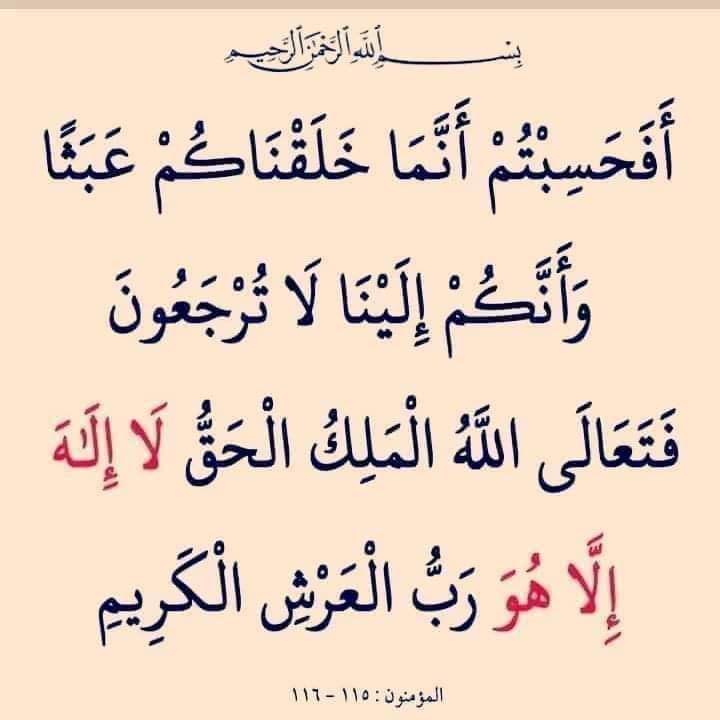 بِسْمِ اللَّهِ الرَّحْمَٰنِ الرَّحِيمِ
أَفَحَسِبْتُمْ أَنَّمَا خَلَقْنَاكُمْ عَبَثًا
وَأَنَّكُمْ إِلَيْنَا لَا تُرْجَعُونَ
فَتَعَالَى اللَّهُ الْمَلِكُ الْحَقُّ لَا إِلَٰهَ
إِلَّا هُوَ رَبُّ الْعَرْشِ الْكَرِيمِ
المؤمنون : ١١٥ - ١١٦